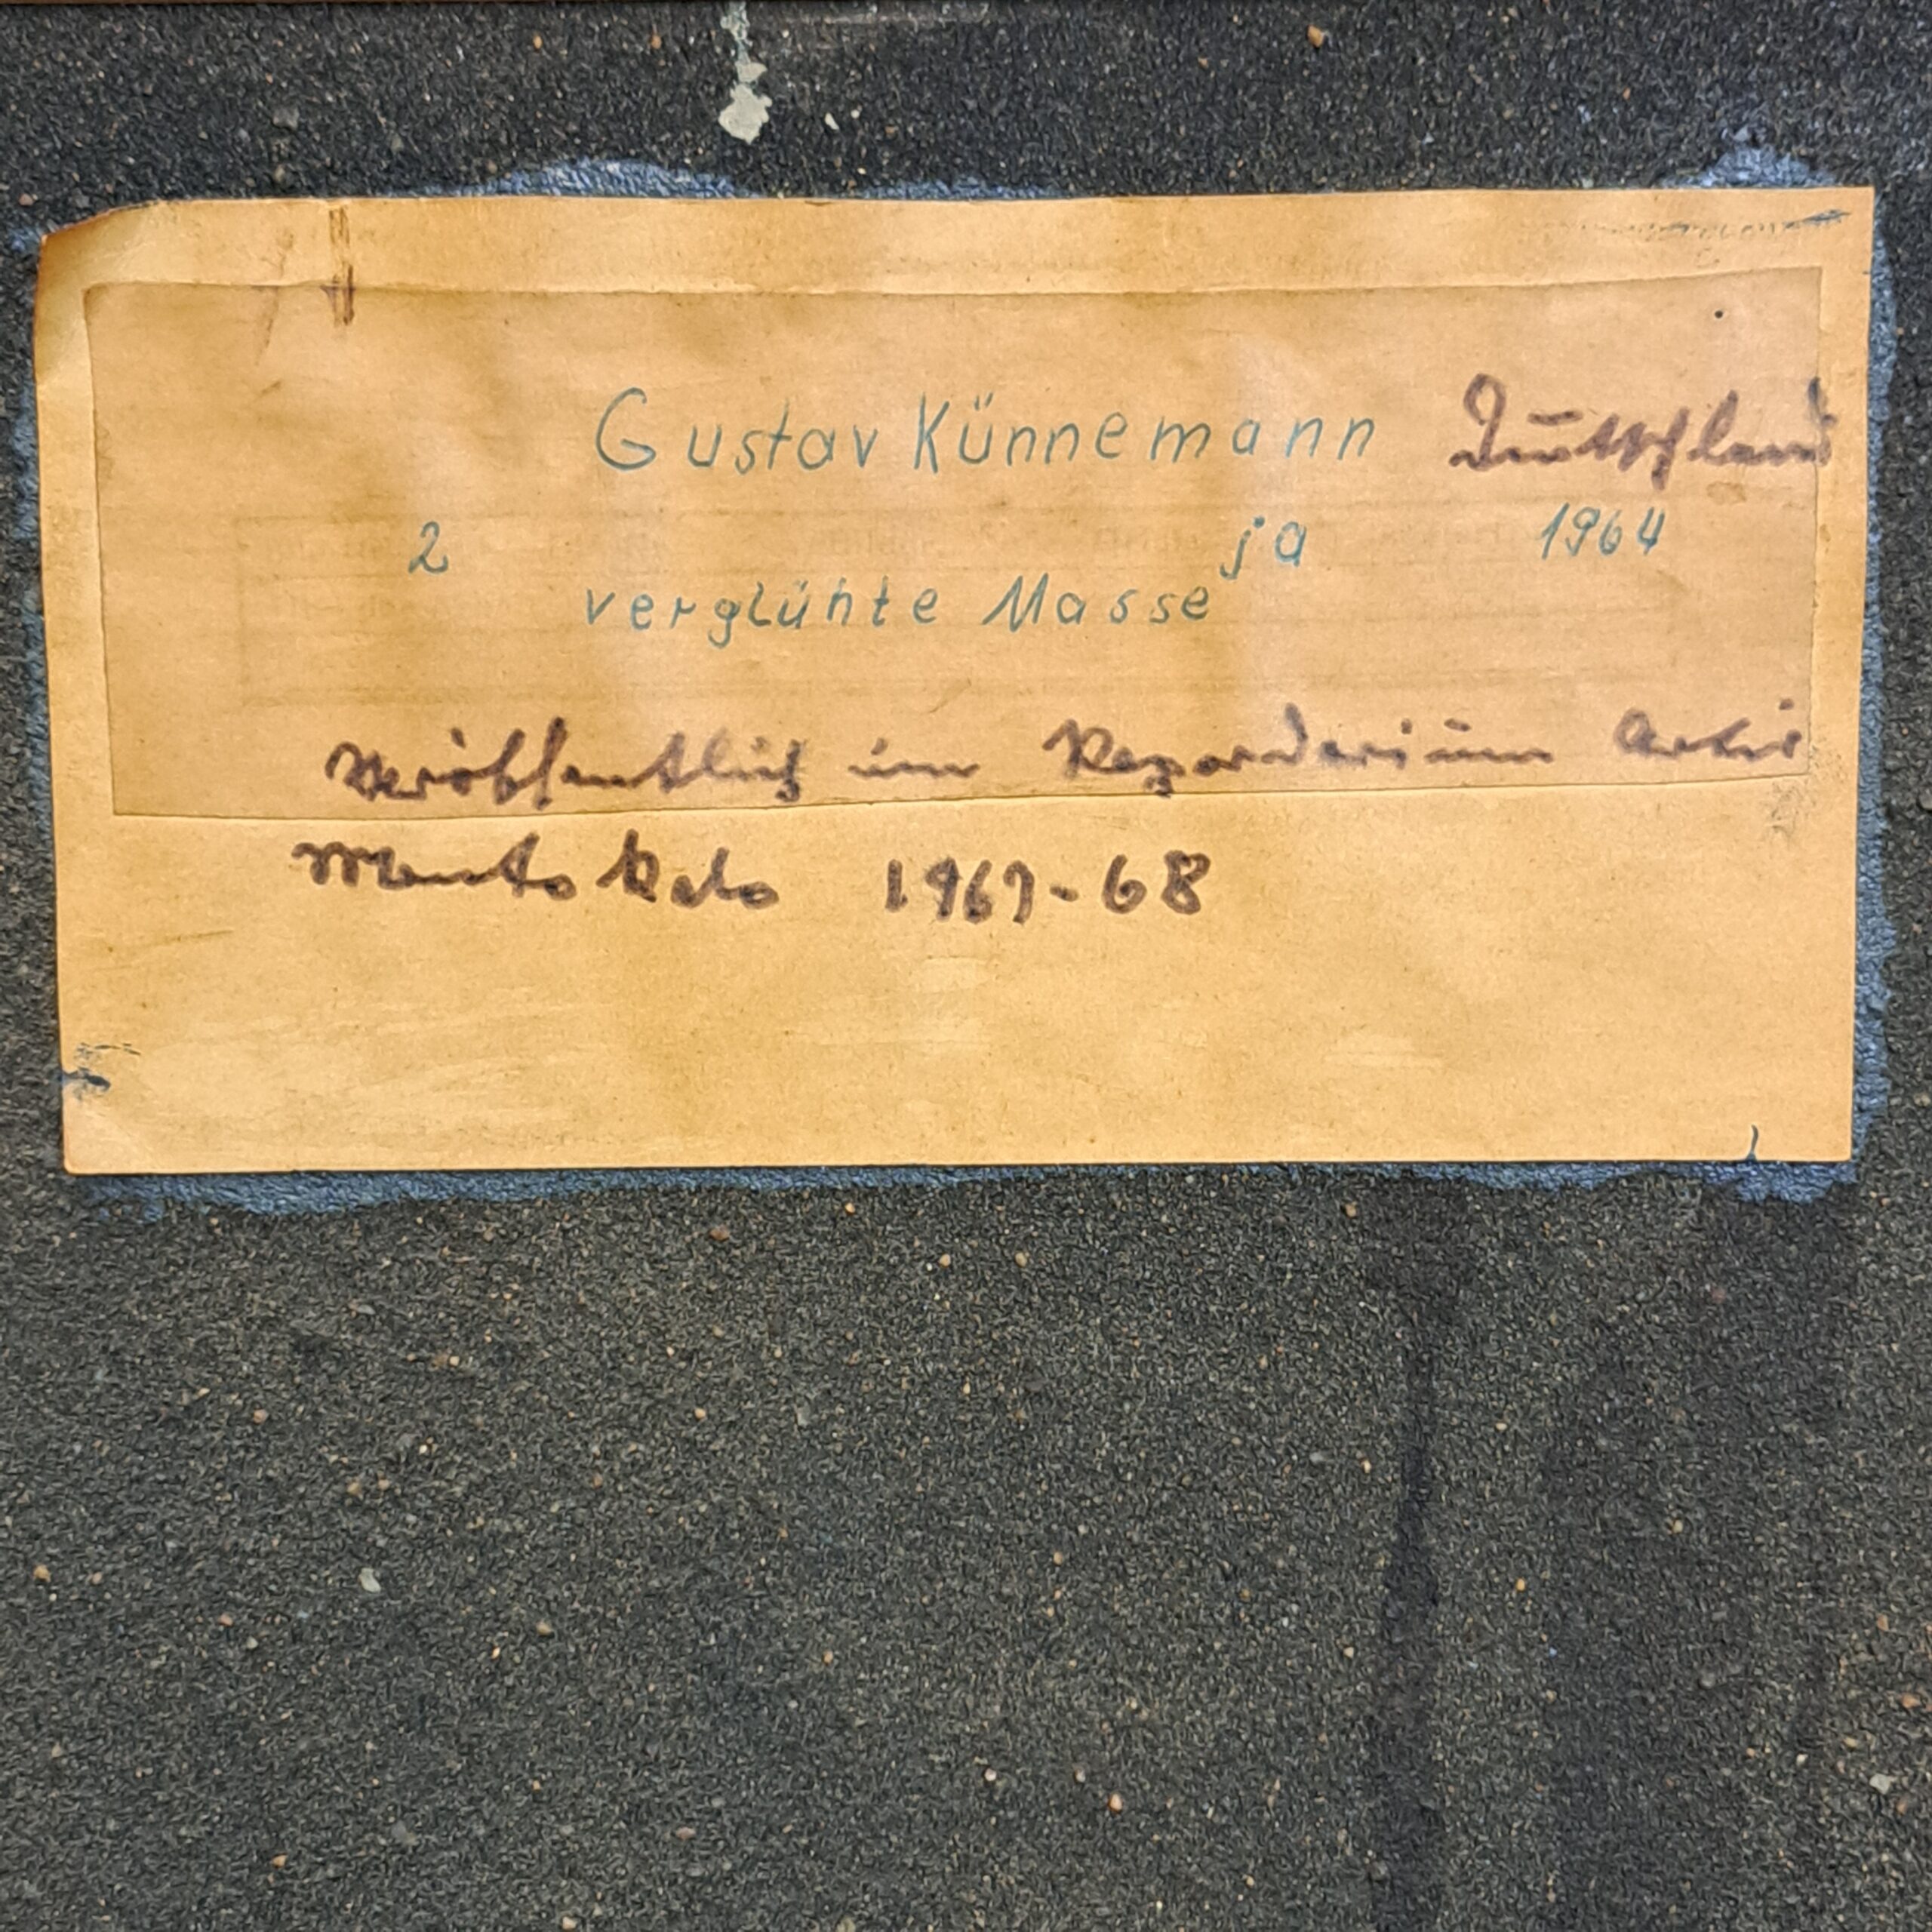 Gustav Künnemann Deutschland
2 ja 1964
verglühte Masse
Veröffentlich im Reparderium Artis
Monte Kalo 1967-68